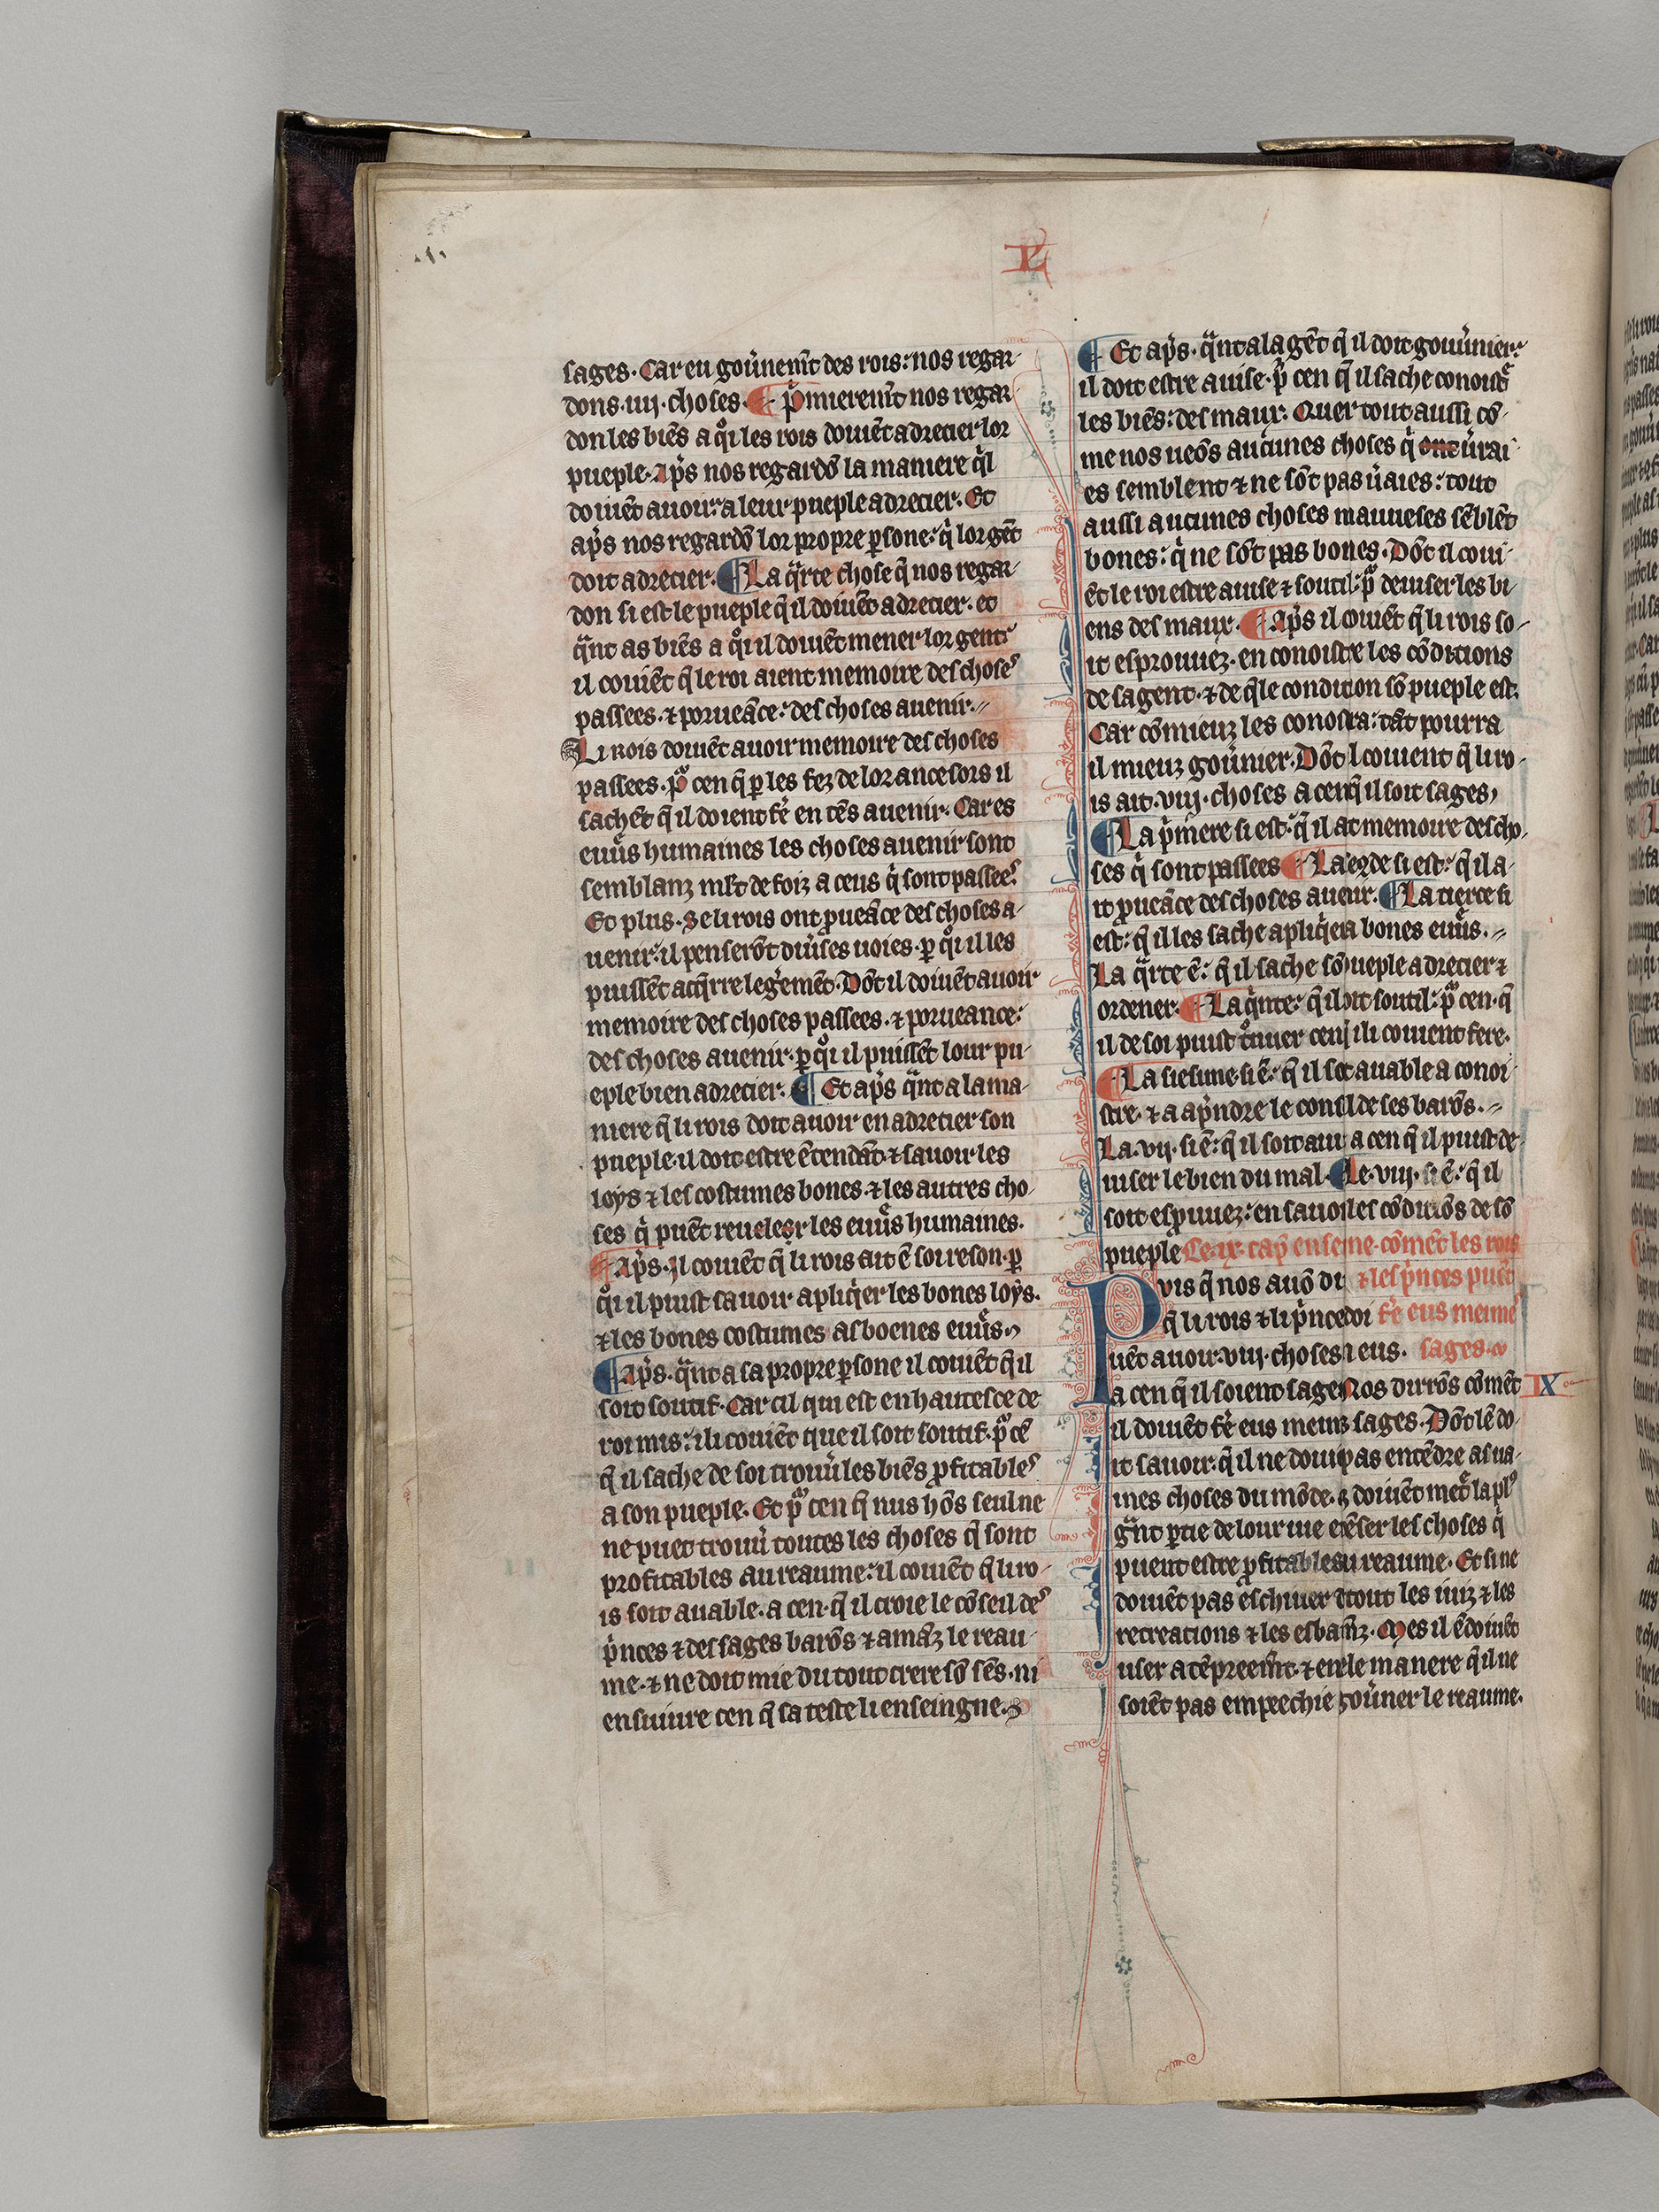 L
sages. Car en gou̾nem̄t des rois: nos regar-
dons .iiij. choses. ¶ p̾mierem̄t nos regar-
don les biēs a qͦi les rois doiuēt adrecier lor
pueple. Ap̾s nos regardōs la maniere q̾l
doiuēt auoir: a leur pueple adrecier. Et
ap̾s nos regardōs lor propre ꝑsone: q̾ lor gēt
doit adrecier. ¶ La qᵃrte chose q̄ nos regar-
don si est le pueple q̄ il doiuēt adrecier. et
qᵃnt as biēs a qͦi il doiuēt mener lor gent:
il couiēt q̄ le roi aient memoire des choses
passees. ⁊ porueāce: des choses auenir.
Li rois doiuēt auoir memoire des choses
passees. pᵒ cen q̄ ꝑ les fez de lor ancesors il
sachēt q̄ il doient fe̾ en tēs auenir. Car es
euuᵉs humaines les choses auenir sont
semblanz ml̄t de foiz a ceus q̾ sont passees.
Et plus. Se li rois ont ꝓueāce des choses a-
uenir: il penserōt diu̾ses uoies. ꝑ qͦi il les
puissēt acq̄rre leg̾emēt. Dōt il doiuēt auoir
memoire des choses passees. ⁊ porueance:
des choses auenir. ꝑ qͦi il puissēt lour pu-
eple bien adrecier. ¶ Et ap̾s qᵃnt a la ma-
niere q̄ li rois doit auoir en adrecier son
pueple. il doit estre ētendāt. ⁊ sauoir les
loys ⁊ les costumes bones. ⁊ les autres cho-
ses q̾ puēt reuelesr les euuᵉs humaines.
¶ Ap̾s. Il couiēt q̄ li rois ait ē soi reson. ꝑ
qͦi il puist sauoir apliq̾er les bones loys.
⁊ les bones costumes as boenes euuᵉs.
¶ Ap̾s. qᵃnt a sa propre ꝑsone il couiēt q̄ il
soit soutif. Car cil qui est en hautesce de
roi mis: il i couiēt que il soit soutif. pᵒ cē
q̄ il sache de soi trouu̾ les biēs ꝓfitables
a son pueple. Et pᵒ cen q̄ nus hōs seul ne
ne puet trouu̾ toutes les choses q̄ sont
profitables au reaume: il couiēt q̄ li ro-
is soit auable. a cen. q̄ il croie le cōseil des
p̾nces ⁊ des sages barōs ⁊ amāz le reau-
me. ⁊ ne doit mie du tout crere sō sēs. ni
ensuiure cen q̄ sa teste li enseingne.
¶ Et ap̾s. qᵃnt a la gēt q̄ il doit gouu̾nier:
il doit estre auise. pᵒ cen q̄ il sache conoistᵉ
les biēs: des maux. Quer tout aussi cō-
me nos ueōs aucunes choses q̾ ont urai-
es semblent ⁊ ne sōt pas u̾aies: tout
aussi aucunes choses mauueses sēblēt
bones: q̾ ne sōt pas bones. Dōt il coui-
ēt le roi estre auise ⁊ soutil: pᵒ deuiser les bi-
ens des maux. ¶ Ap̾s il couiēt q̄ li rois so-
it esprouuez. en conoistre les cōdicions
de sa gent. ⁊ de q̄le condition sō pueple est.
Car cō mieuz les conostra: tāt pourra
il mieuz gou̾nier. Dōt l couient q̄ li ro-
is ait .viij. choses a cen q̄ il soit sages,
¶ La p̾miere si est: q̄ il at memoire des cho-
ses q̾ sont passees ¶ La segde si est: q̄ il a-
it ꝓueāce des choses auenir. ¶ La tierce si
est: q̄ il les sache apliq̾er a bones euuᵉs.
La qᵃrte ē: q̄ il sache sō pueple adrecier ⁊
ordener. ¶ La q̾nte: q̄ il soit soutil: pᵒ cen. q̄
il de soi puist trouuer cen q̄ il i couient fere.
¶ La siesime si ē: q̄ il soit auable a conoi-
stre. ⁊ a ap̾ndre le conseil de ses barōs.
La .vij. si ē: q̄ il soit auis a cen q̄ il puist de-
uiser le bien du mal. ¶ Le .viij. si ē: q̄ il
soit esprouuez: en sauoir les cōdiciōs de sō
pueple Le .ix. cap̄ enseine. cōmēt les rois
Puis q̄ nos auō dit ⁊ les p̾nces puēt
q̄ li rois ⁊ li p̾nce doi- fe̾ eus meime
uēt auoir .viij. choses ē eus. sages.
a cen q̄ il soient sage Nos dirrōs cōmēt
IX
il doiuēt fe̾ eus meimes sages. Dōt lē do-
it sauoir. q̄ il ne doiuēt pas entēdre as ua-
ines choses du mōde. ⁊ doiuēt metᵉ la pl⁹
gᵃnt ꝑtie de lour uie ē pēser les choses q̾
puent estre ꝓfitables au reaume. Et si ne
doiuēt pas eschiuer de tout les ieuz ⁊ les
recreacions ⁊ les esbatm̄z. Mes il ē doiuēt
user atēpreem̄t. ⁊ en tele manere q̄ il ne
soiēt pas empeechie gou̾ner le reaume.